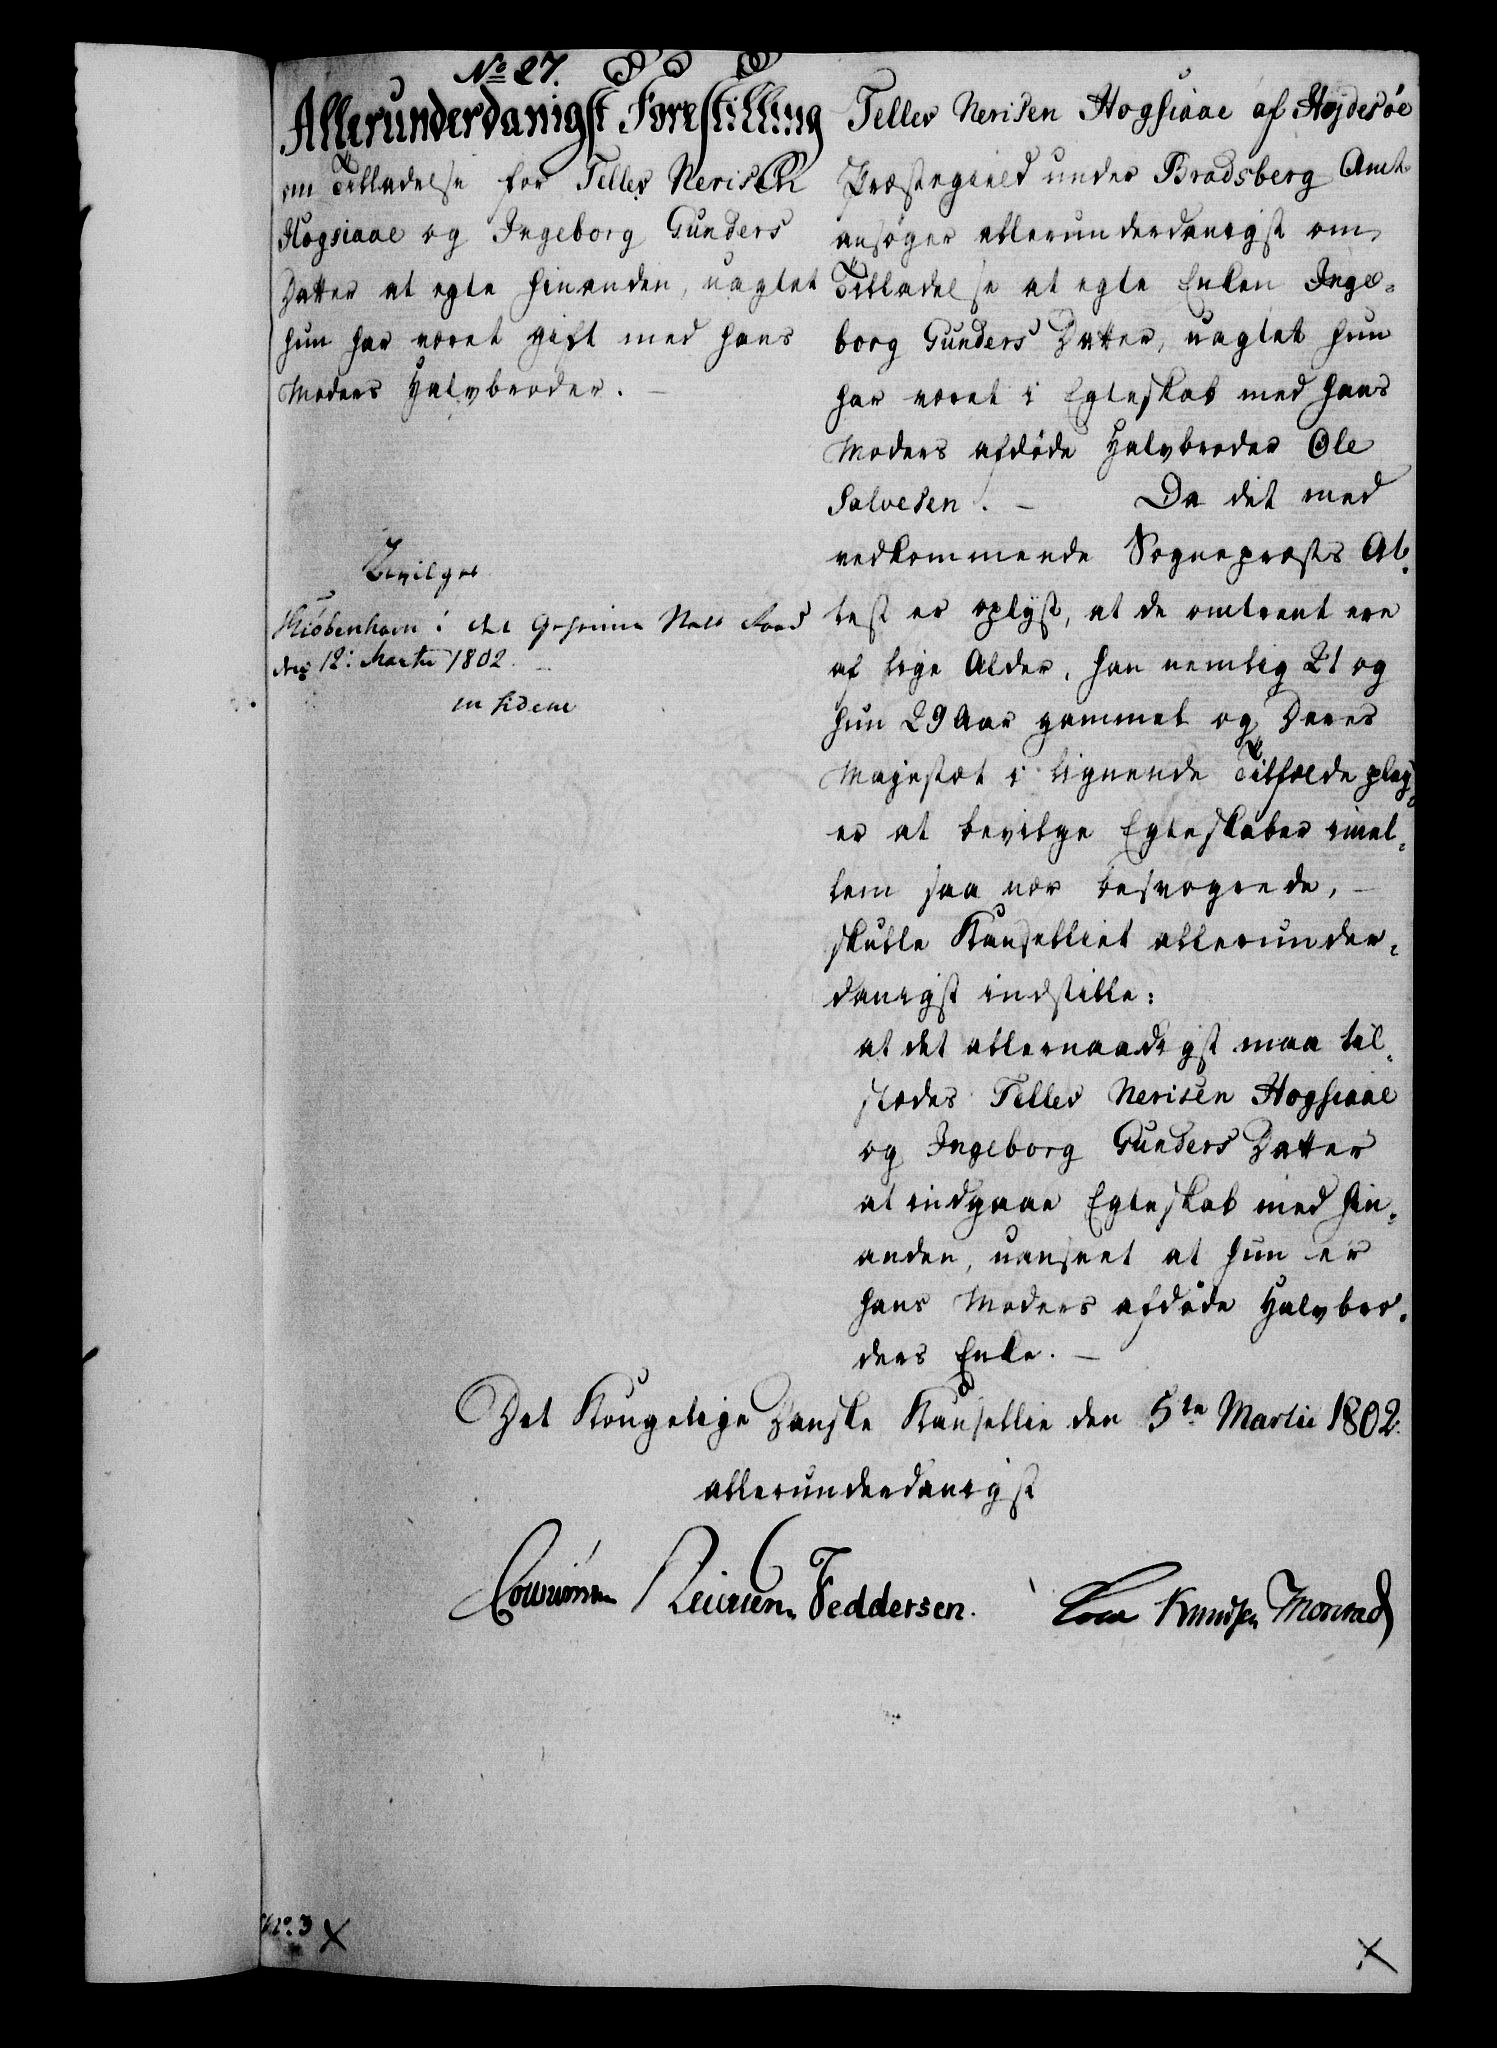 No 27.
Allerunderdanigst Forestilling
om Tilladelse for Tellev Nerisen
Hogsiaae og Ingeborg Gunders
Datter at egte hinanden, uagtet
hun har været gift med hans
Moders Halvbroder. –
Bevilges
Kiöbenhavn i det Geheime Stats Raad
den 12: Martii 1802.
in fidem
Tellev Nerisen Hogsiaae af Hvjdesøe
Præstegield under Bradsberg Amt
ansøger allerunderdanigst om
Tilladelse at egte Enken Inge-
borg Gunders Datter, uagtet hun
har været i Egteskab med hans
Moders afdøde Halvbroder Ole
Salvesen. – Da det med
vedkommende Sognepræsts At-
test er oplyst, at de omtrent ere
af lige Alder, han nemlig 21 og
hun 29 Aar gammel og Deres
Majestæt i lignende Tilfælde plej-
er at bevilge Egteskaber imel-
lem saa nær besvogrede, –
skulle Kanselliet allerunder-
danigst indstille:
at det allernaadigst maa til-
stædes Tellev Nerisen Hogsiaae
og Ingeborg Gunders Datter
at indgaae Egteskab med hin-
anden, uanseet at hun er
hans Moders afdøde Halvbro-
ders Enke. –
Det Kongelige Danske Kansellie den 5te Martii 1802.
allerunderdanigst
Feddersen. Knudsen Monrad
No. 3 X
X